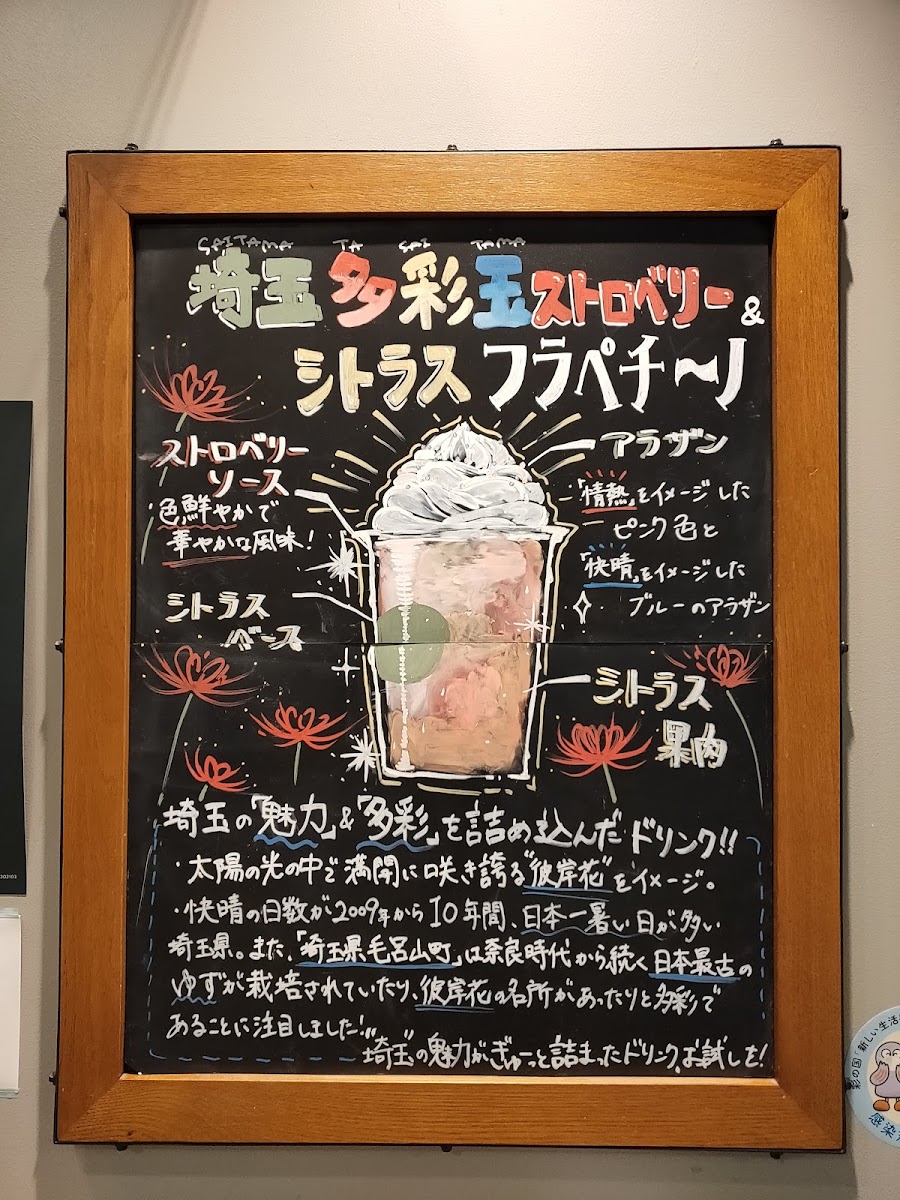 SAITAMA TA SAI TAMA
埼玉 多彩玉ストロベリー&
シトラス フラペチ〜ノ
ストロベリー
ソース
色鮮やかで
華やかな風味!
シトラス
ベース
アラザン
「情熱」をイメージした
ピンク色と
「快晴」をイメージした
ブルーのアラザン
シトラス
果肉
埼玉の「魅力」&「多彩」を詰め込んだドリンク!!
・太陽の光の中で満開に咲き誇る"彼岸花"をイメージ。
・快晴の日数が2009年から10年間、日本一暑い日が多い
埼玉県。また、「埼玉県毛呂山町」は奈良時代から続く日本最古の
ゆずが栽培されていたり、彼岸花の名所があったりと多彩で
あることに注目しました!
"埼玉"の魅力がぎゅーっと詰まったドリンク、お試しを!
彩の国「新しい生活
感染